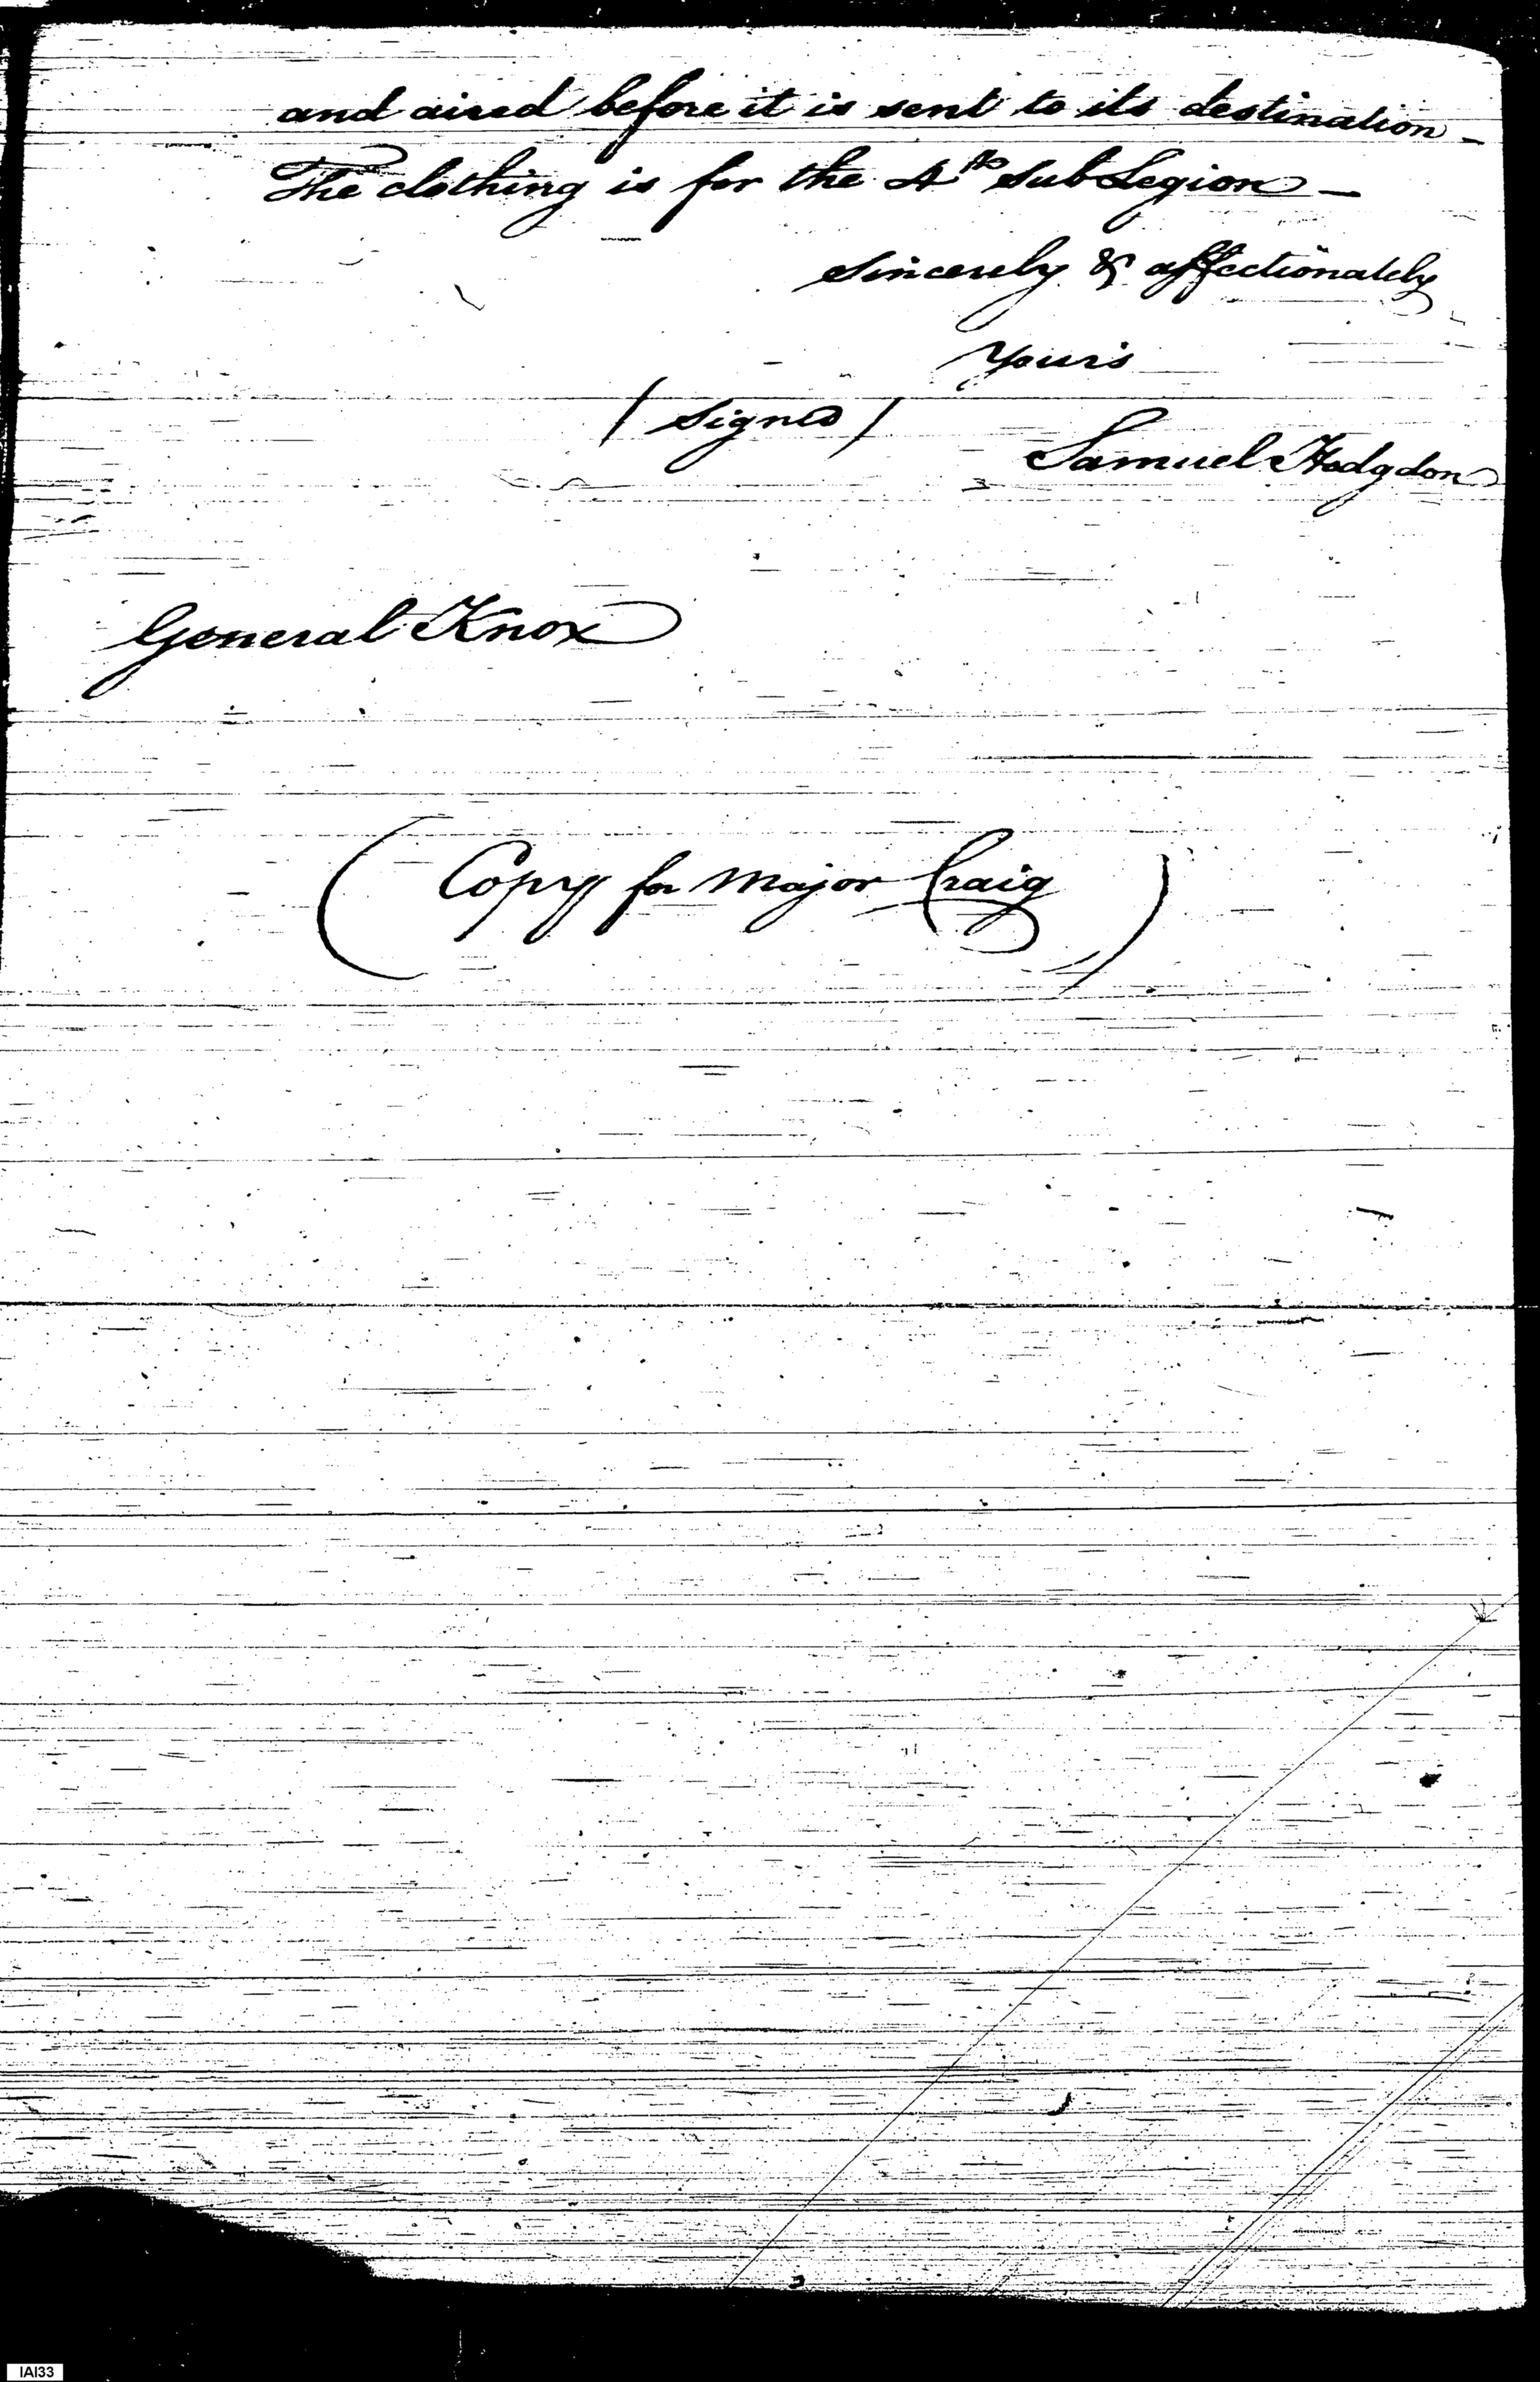 and aired before it is sent to its destination –
The clothing is for the 4th Sub Legion –
Sincerely & affectionately
Yours
/ Signed /
Samuel Hodgdon
General Knox
(Copy for Major Craig)
IAI33